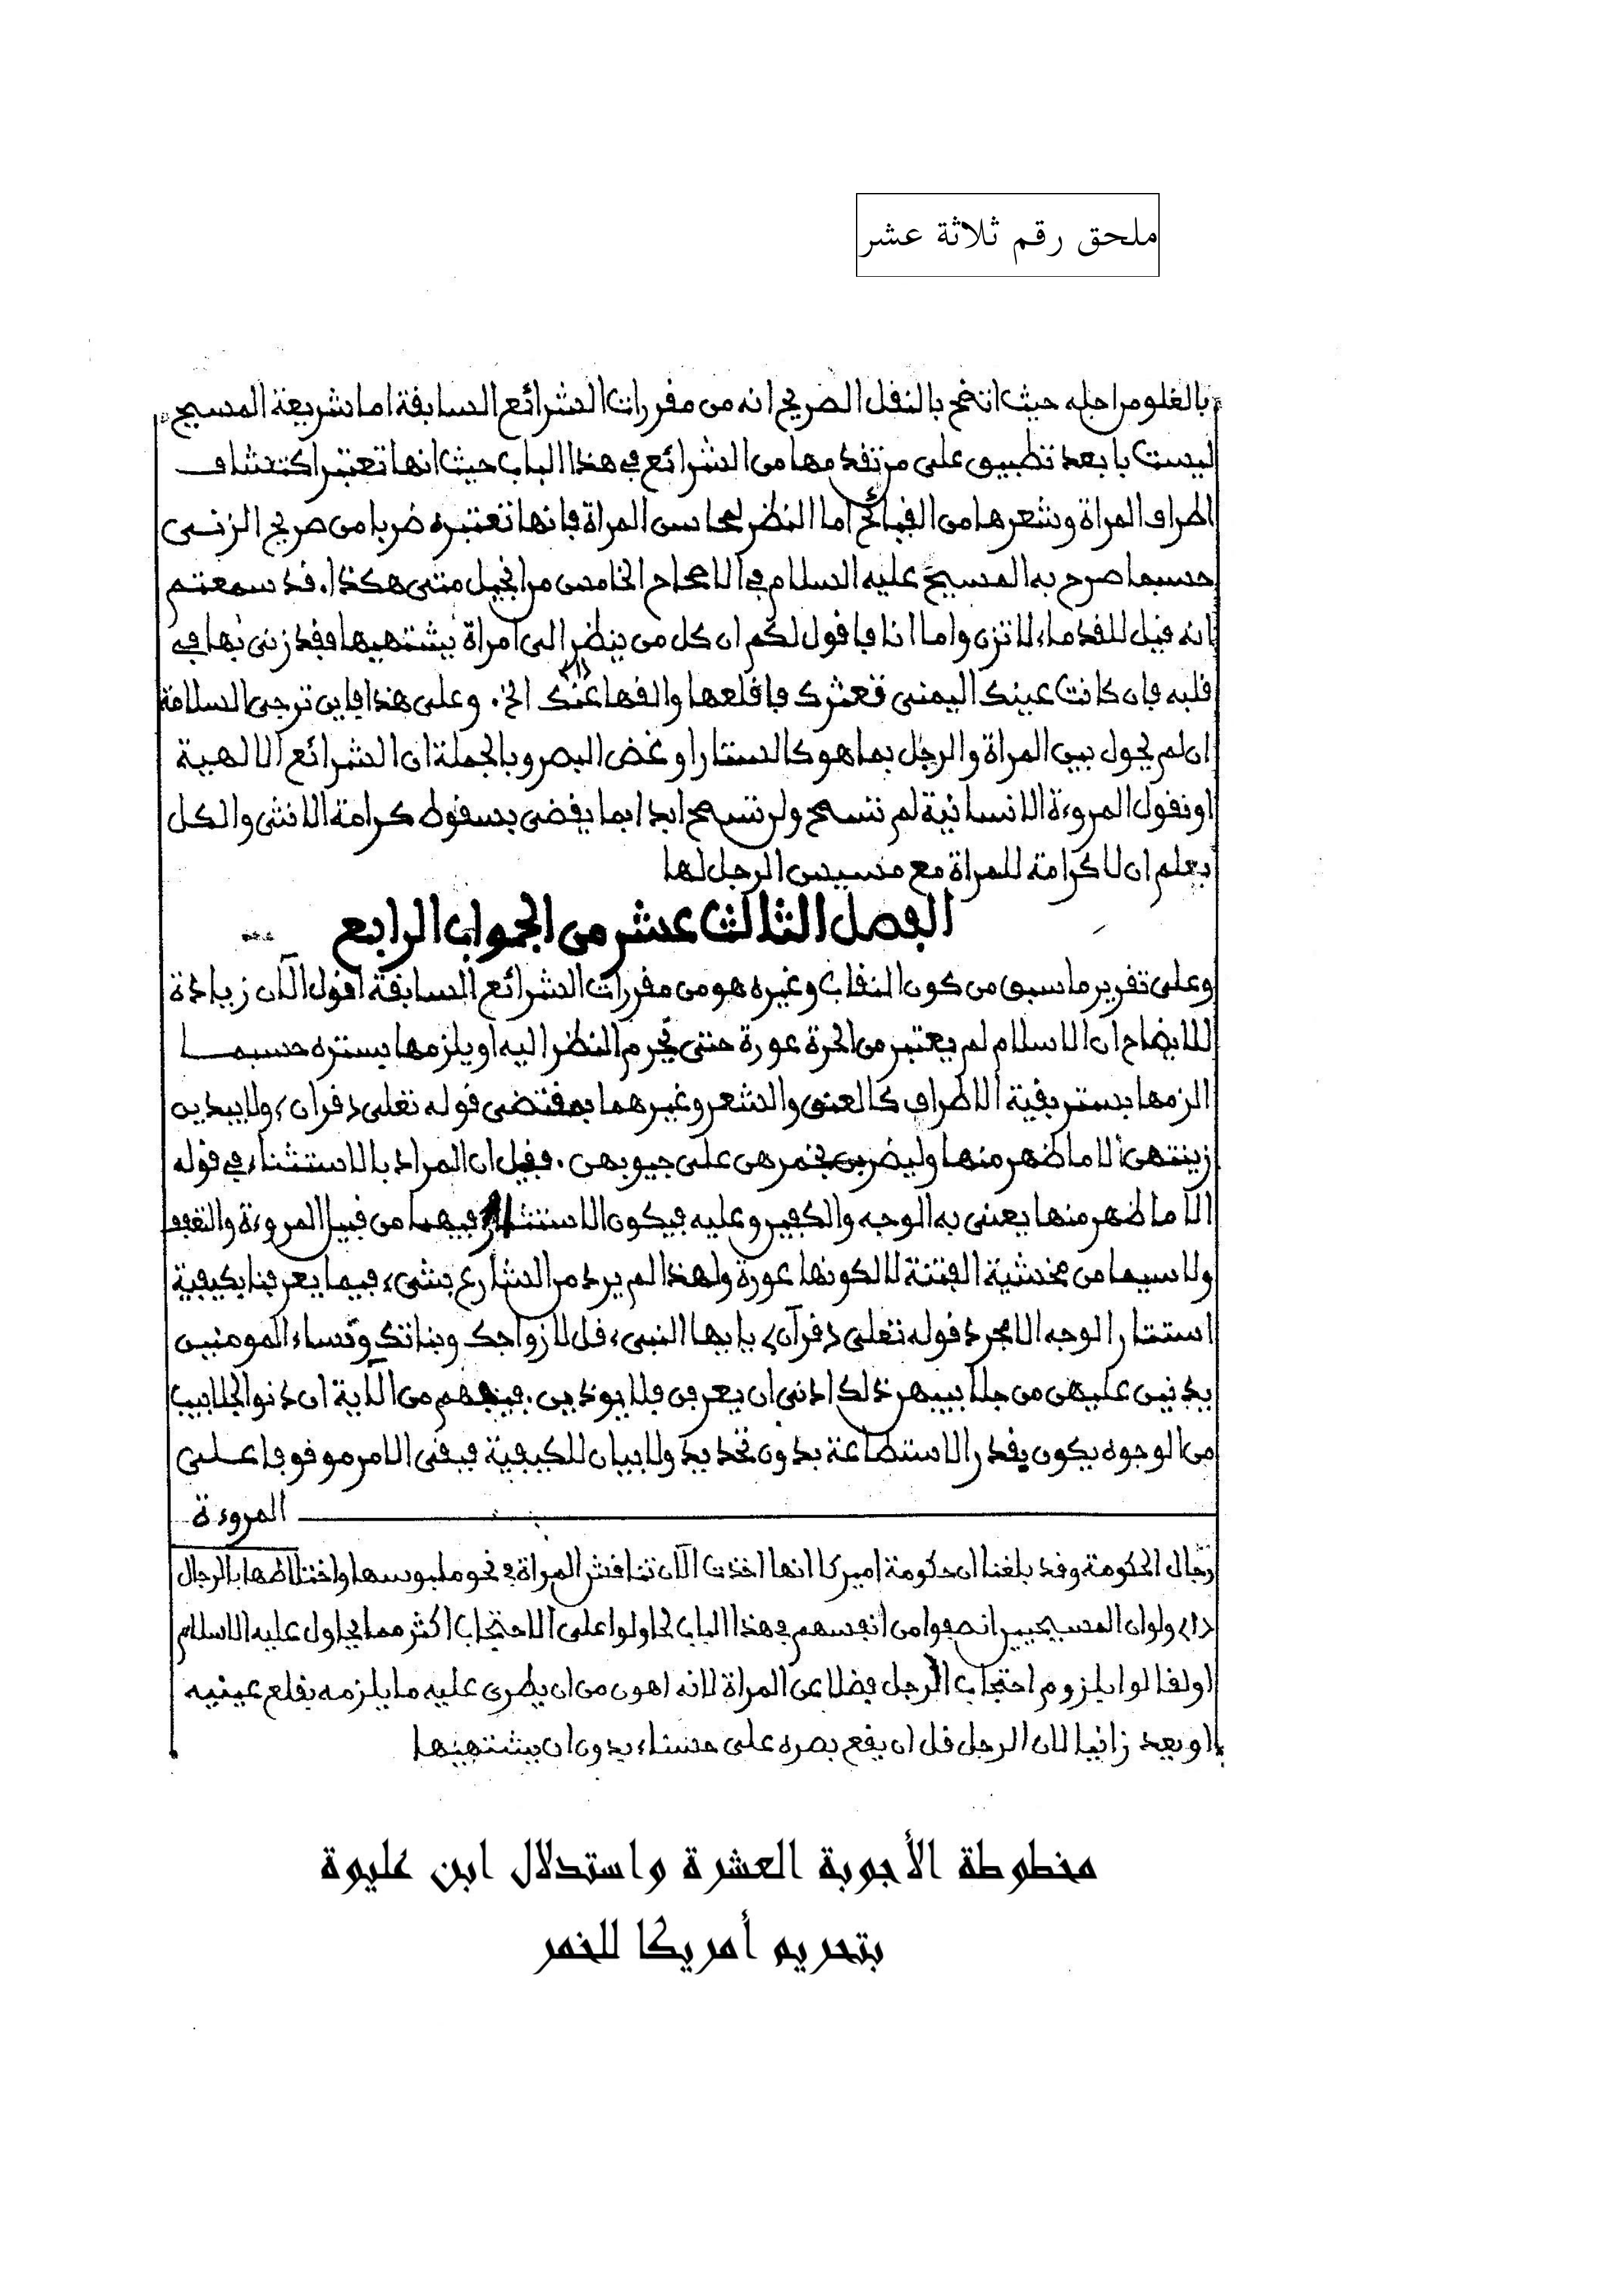 ملحق رقم ثلاثة عشر
بالغلو من اجله حيث اتضح بالنقل الصريح انه من مقررات الشرائع السابقة اما شريعة المسيح
ليست بابعد تطبيق على من تقدمها من الشرائع في هذا الباب حيث انها تعتبر اكتشاف
اطراف المراة وشعرها من القبائح اما النظر لمحاسن المراة فانها تعتبره ضربا من صريح الزنى
حسبما صرح به المسيح عليه السلام في الاصحاح الخامس من انجيل متى هكذا. قد سمعتم
انه قيل للقدماء لا تزن واما انا فاقول لكم ان كل من ينظر الى امراة يشتهيها فقد زنى بها في
قلبه فان كانت عينك اليمنى تعثرك فاقلعها والقها عنك (1) الخ. وعلى هذا فاين ترجى السلامة
ان لم يحول بين المراة والرجل بما هو كالستار او غض البصر وبالجملة ان الشرائع الالهية
او نقول المروءة الانسانية لم تسمح ولن تسمح ابدا بما يفضي بسقوط كرامة الانثى والكل
يعلم ان لا كرامة للمراة مع مسيس الرجل لها
الفصل الثالث عشر من الجواب الرابع
وعلى تقرير ما سبق من كون النقاب وغيره هو من مقررات الشرائع السابقة اقول الآن زيادة
للايضاح ان الاسلام لم يعتبر من الحرة عورة حتى يحرم النظر اليه او يلزمها بستره حسبما
الزمها بستر بقية الاطراف كالعنق والشعر وغيرهما بمقتضى قوله تعلى (قرآن) ولا يبدين
زينتهن الا ما ظهر منها وليضربن بخمرهن على جيوبهن. فقيل ان المراد بالاستثناء في قوله
الا ما ظهر منها يعني به الوجه والكفين وعليه فيكون الاستتار فيهما من قبيل المروءة والتعفف
ولا سيما من مخشية الفتنة لا لكونها عورة ولهذا لم يرد من الشارع بشيء فيما يعرفنا بكيفية
استتار الوجه الا مجرد قوله تعلى (قرآن) يايها النبيء قل لازواجك وبناتك ونساء المومنين
يدنين عليهن من جلابيبهن ذلك ادنى ان يعرفن فلا يوذين. فيفهم من الآية ان دنو الجلابيب
من الوجوه يكون بقدر الاستطاعة بدون تحديد ولا بيان للكيفية فبقى الامر موقوفا على
المروءة
رجال الحكومة وقد بلغنا ان حكومة اميركا انها اخذت الآن تناقش المراة في نحو ملبوسها واختلاطها بالرجال
(1) ولو ان المسيحيين انصفوا من انفسهم في هذا الباب لحاولوا على الاحتجاب اكثر مما يحاول عليه الاسلام
او لقالوا بلزوم احتجاب الرجل فضلا عن المراة لانه اهون من ان يطرى عليه ما يلزمه بقلع عينيه
او يعد زانيا لان الرجل قل ان يقع بصره على حسناء بدون ان يشتهيها
مخطوطة الأجوبة العشرة واستدلال ابن عليوة
بتحريم أمريكا للخمر